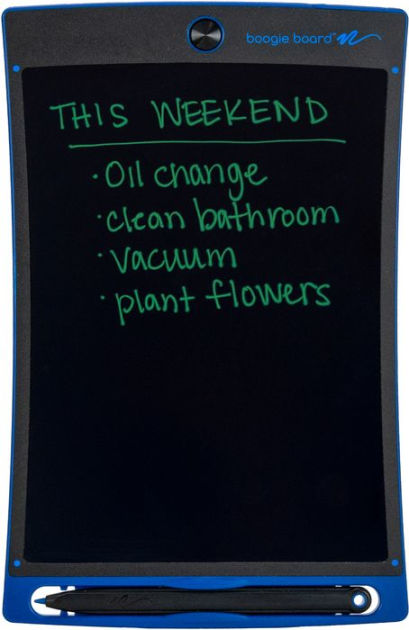 boogie board™
THIS WEEKEND
· Oil change
· clean bathroom
· vacuum
· plant flowers